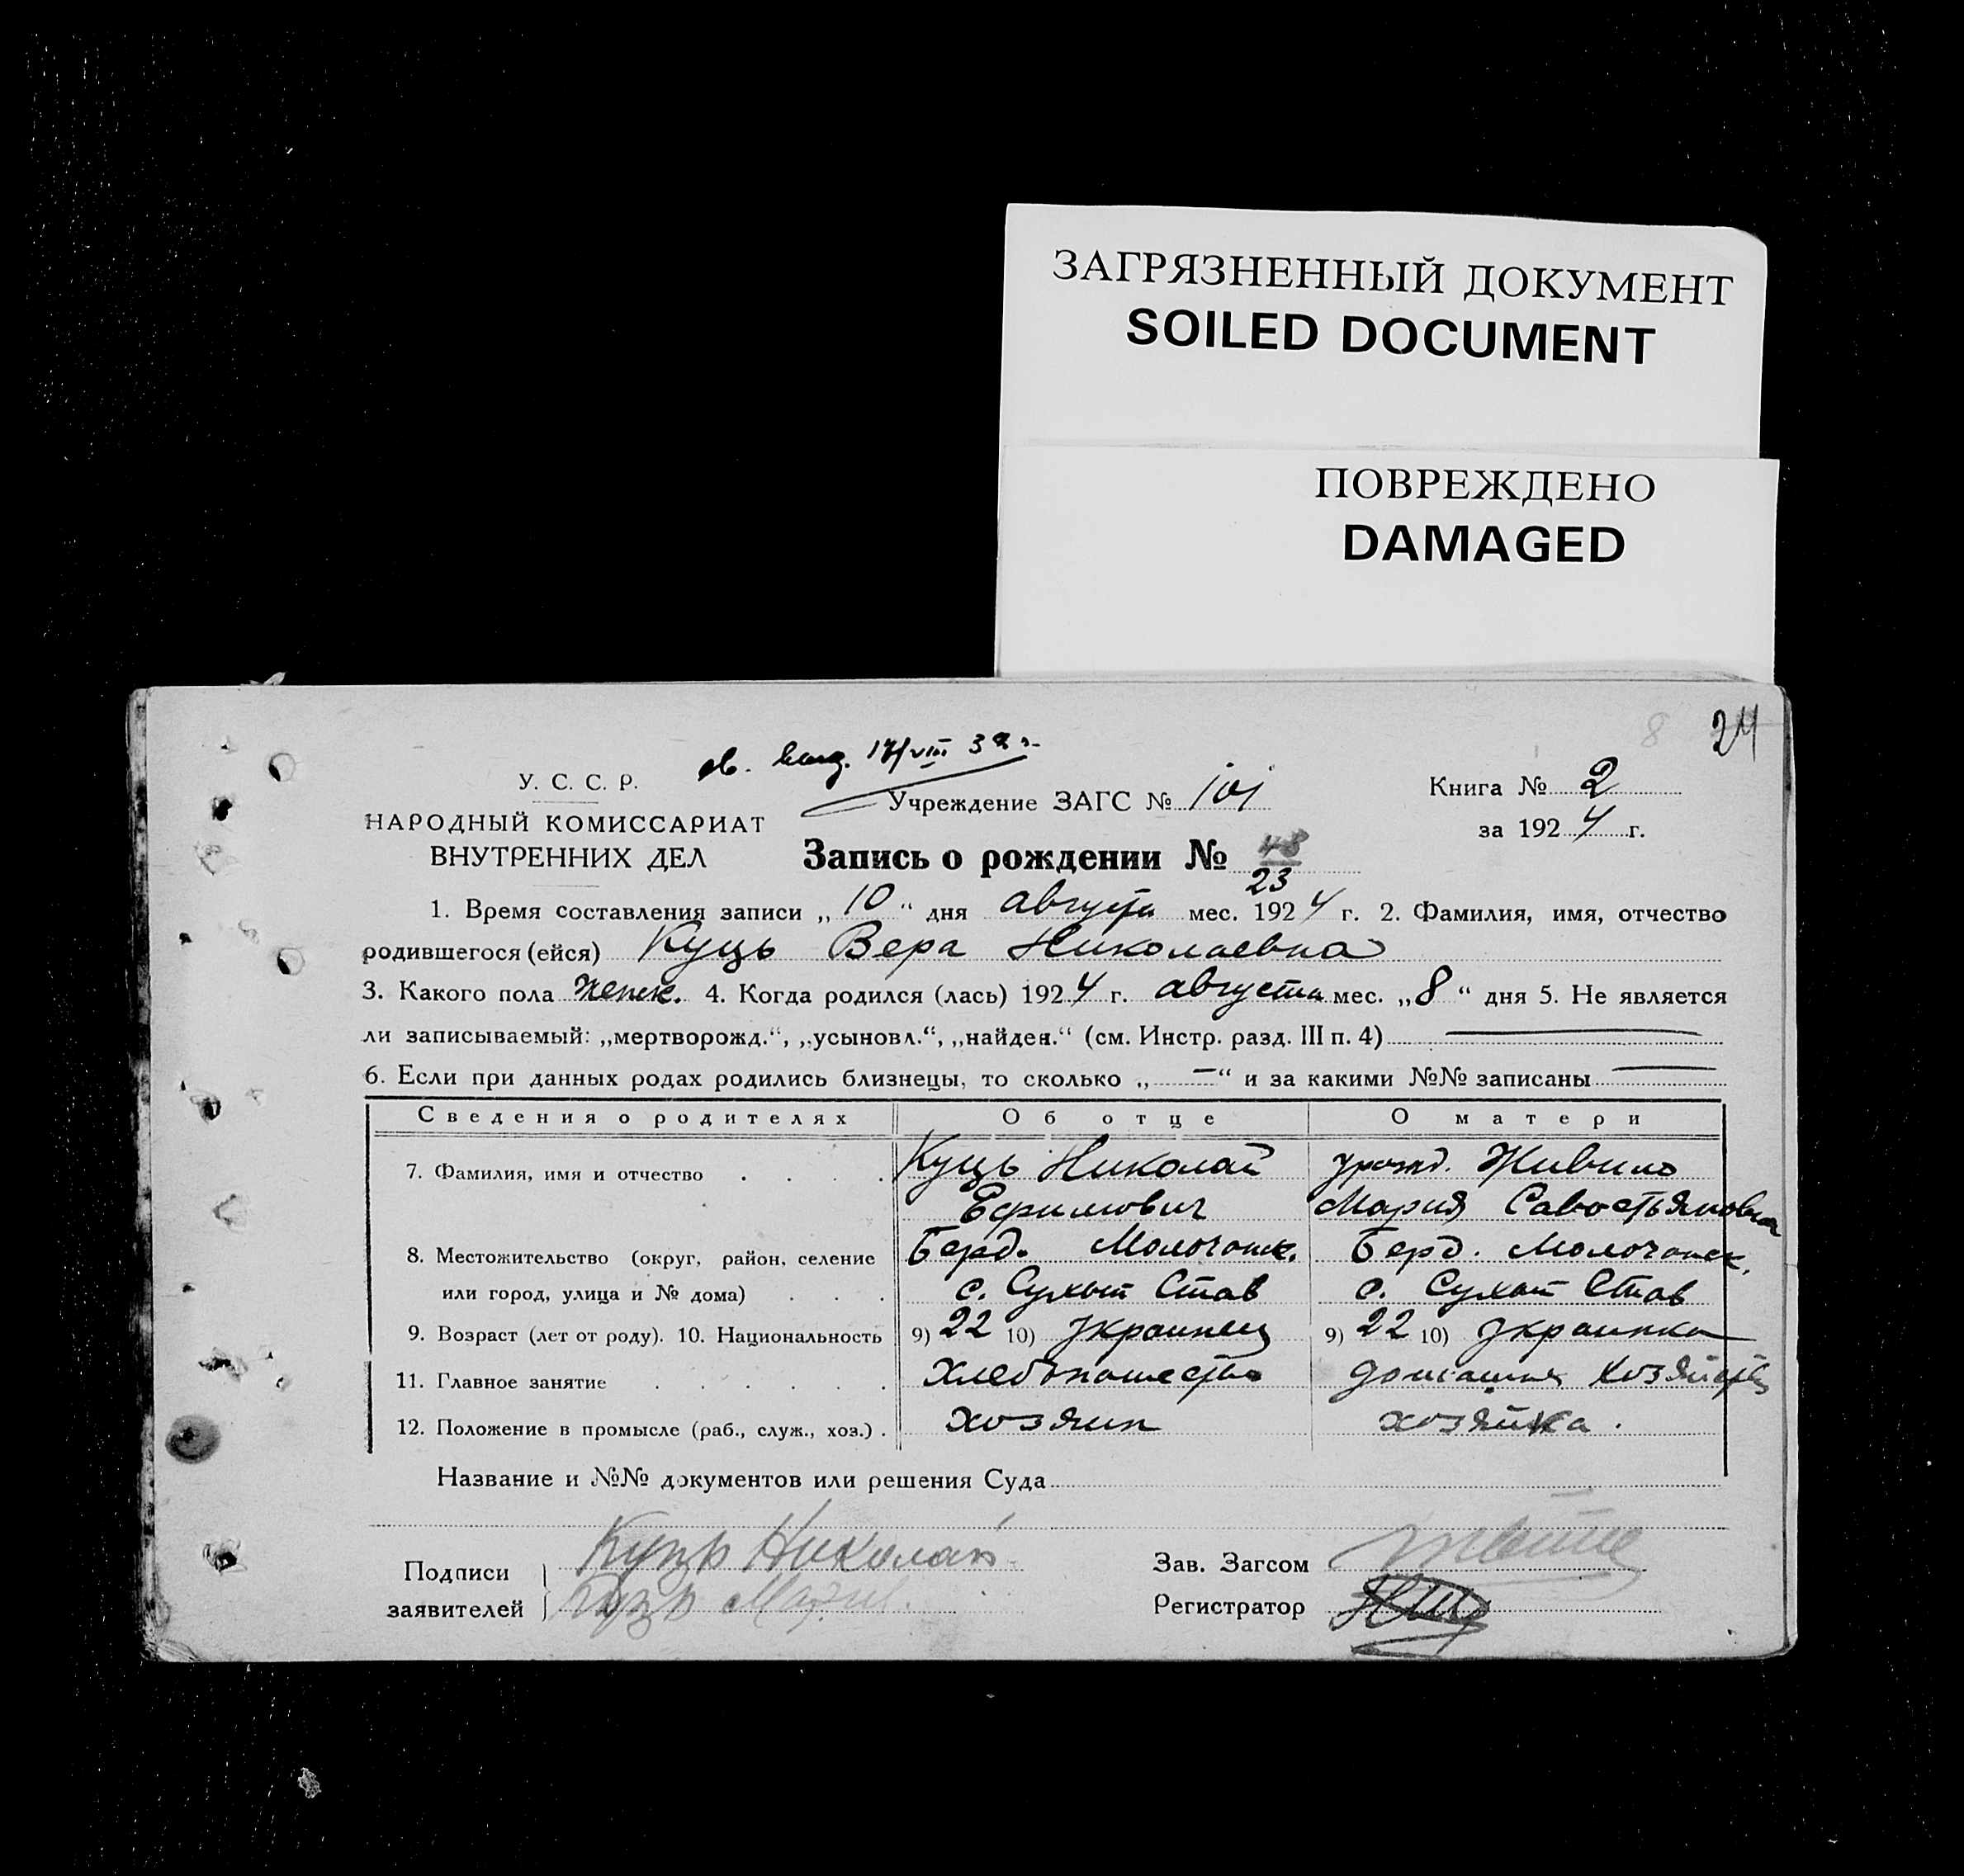 ЗАГРЯЗНЕННЫЙ ДОКУМЕНТ
SOILED DOCUMENT
ПОВРЕЖДЕНО
DAMAGED
8 24
17/VIII 39 г.
У. С. С. Р.
НАРОДНЫЙ КОМИССАРИАТ
ВНУТРЕННИХ ДЕЛ
Учреждение ЗАГС № 101
Книга № 2
за 1924 г.
Запись о рождении № 48
23
1. Время составления записи „10“ дня августа мес. 1924 г. 2. Фамилия, имя, отчество
родившегося (ейся) Куць Вера Николаевна
3. Какого пола женск. 4. Когда родился (лась) 1924 г. августа мес. „8“ дня 5. Не является
ли записываемый: „мертворожд.“, „усыновл.“, „найден.“ (см. Инстр. разд. III п. 4) —
6. Если при данных родах родились близнецы, то сколько „—“ и за какими №№ записаны —
Сведения о родителях Об отце О матери
7. Фамилия, имя и отчество Куць Николай урожд. Живило
Ефимович Мария Савостьяновна
8. Местожительство (округ, район, селение Берд. Молочанск. Берд. Молочанск.
или город, улица и № дома) с. Сухой Став с. Сухой Став
9. Возраст (лет от роду). 10. Национальность 9) 22 10) украинец 9) 22 10) украинка
11. Главное занятие хлебопашество домашнее хозяйство
12. Положение в промысле (раб., служ., хоз.) хозяин хозяйка.
Название и №№ документов или решения Суда
Подписи Куць Николай
заявителей Куць Мария
Зав. Загсом
Регистратор